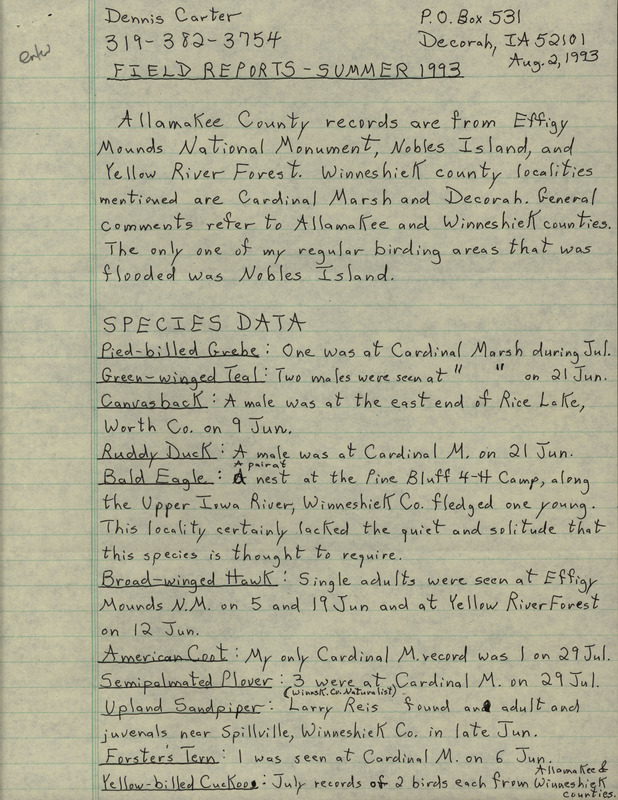 Dennis Carter
P.O. Box 531
319-382-3754
Decorah, IA 52101
Aug. 2, 1993
enter
FIELD REPORTS - SUMMER 1993
Allamakee County records are from Effigy
Mounds National Monument, Nobles Island, and
Yellow River Forest. Winneshiek county localities
mentioned are Cardinal Marsh and Decorah. General
comments refer to Allamakee and Winneshiek counties.
The only one of my regular birding areas that was
flooded was Nobles Island.
SPECIES DATA
Pied-billed Grebe: One was at Cardinal Marsh during Jul.
Green-winged Teal: Two males were seen at " " on 21 Jun.
Canvasback: A male was at the east end of Rice Lake,
Worth Co. on 9 Jun.
Ruddy Duck: A male was at Cardinal M. on 21 Jun.
A pair at
Bald Eagle: A nest at the Pine Bluff 4-H Camp, along
the Upper Iowa River, Winneshiek Co. fledged one young.
This locality certainly lacked the quiet and solitude that
this species is thought to require.
Broad-winged Hawk: Single adults were seen at Effigy
Mounds N.M. on 5 and 19 Jun and at Yellow River Forest
on 12 Jun.
American Coot: My only Cardinal M. record was 1 on 29 Jul.
Semipalmated Plover: 3 were at Cardinal M. on 29 Jul.
(Winnsk. Co. Naturalist)
Upland Sandpiper: Larry Reis found an adult and
juvenals near Spillville, Winneshiek Co. in late Jun.
Forster's Tern: 1 was seen at Cardinal M. on 6 Jun.
Allamakee &
Yellow-billed Cuckoo: July records of 2 birds each from Winneshiek
counties.